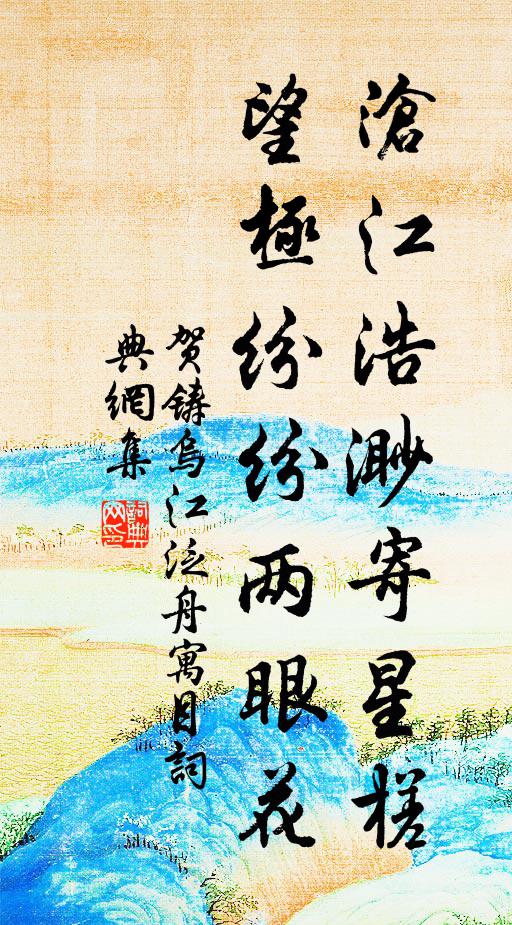 滄江浩渺寄星槎
望極紛紛两眼花
賀鑄烏江泛舟寓目詞
典網集
詞典
网印